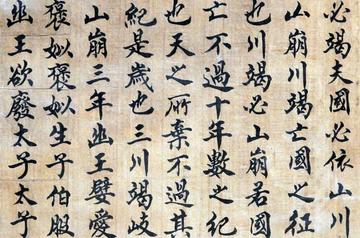 必竭夫國必依山川
山崩川竭亡國之征
也川竭必山崩若國
亡不過十年數之紀
也天之所棄不過其
紀是歲也三川竭岐
山崩三年幽王嬖愛
褒姒褒姒生子伯服
幽王欲廢太子太子